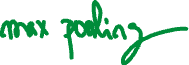 max pooling